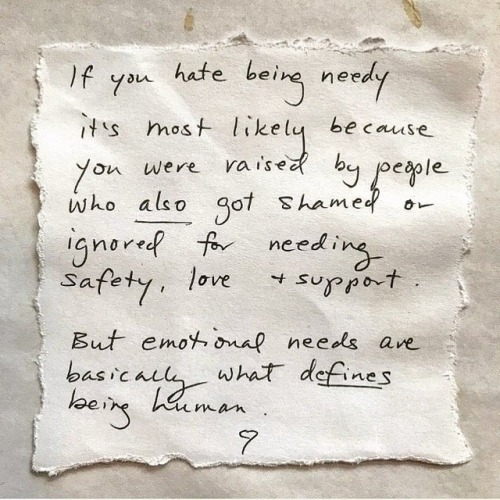 If you hate being needy
it's most likely because
you were raised by people
who also got shamed or
ignored for needing
safety, love + support.
But emotional needs are
basically what defines
being human.